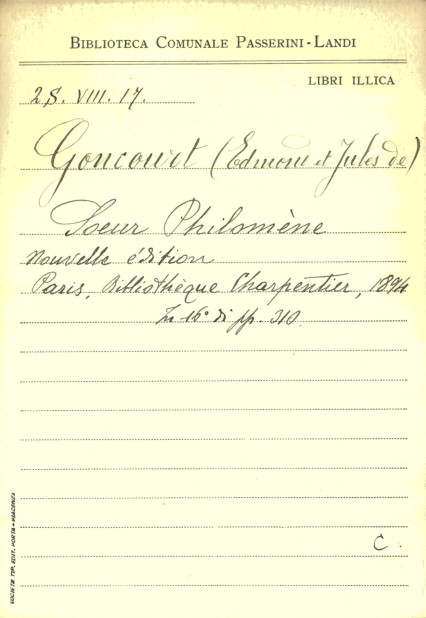 BIBLIOTECA COMUNALE PASSERINI-LANDI
LIBRI ILLICA
2S. VIII. 17.
Goncourt (Edmond et Jules de)
Soeur Philomène
Nouvelle édition
Paris, Bibliothèque Charpentier, 1894
In 16° di pp. 310
C.
SOCIETÀ TIP. EDIT. PORTA - PIACENZA